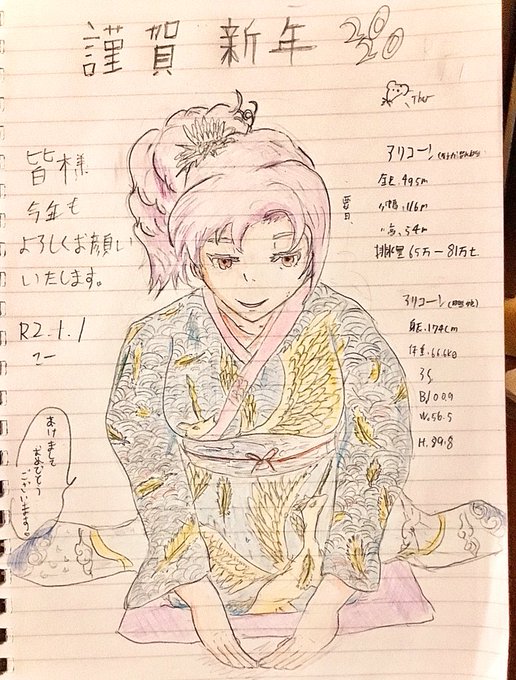 謹賀新年 2020
皆様
今年も
よろしくお願い
いたします。
R2.1.1
こー
あけまして
おめでとう
ございます。
アリコーン
全長.495m
全幅.116m
排水量65万ー81万t
アリコーン
身長.174cm
体重.66.6kg
3S
B/00.9
W.56.5
H.89.8